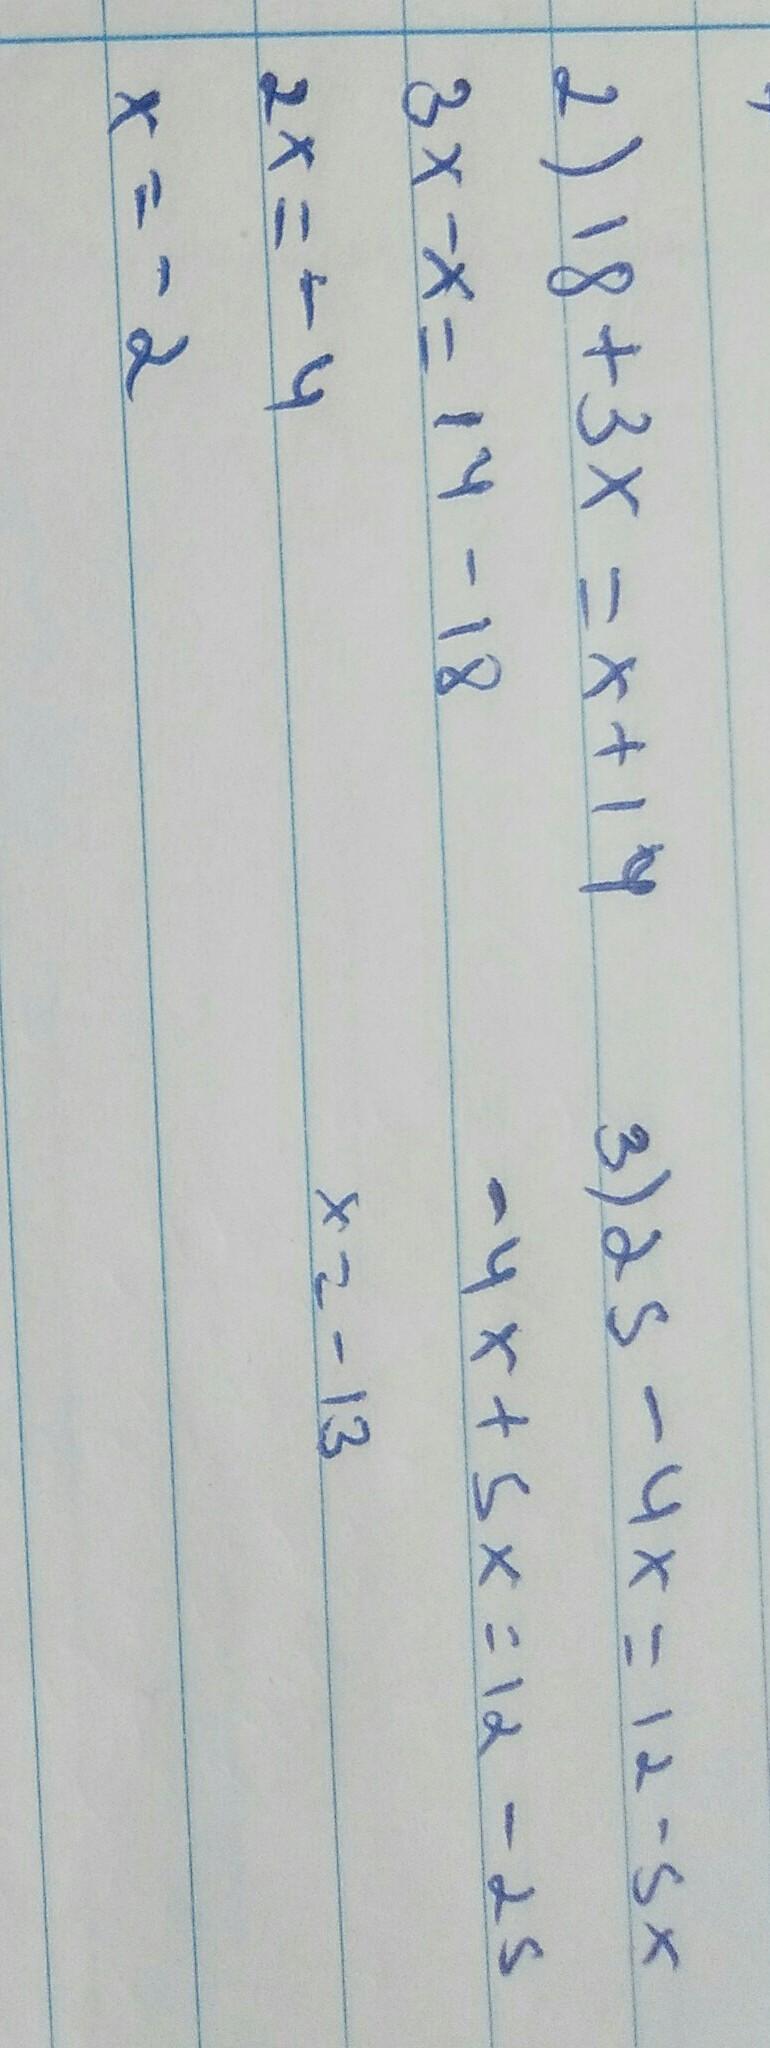 2) 18 + 3x = x + 14
3x - x = 14 - 18
2x = -4
x = -2
3) 25 - 4x = 12 - 5x
-4x + 5x = 12 - 25
x = -13